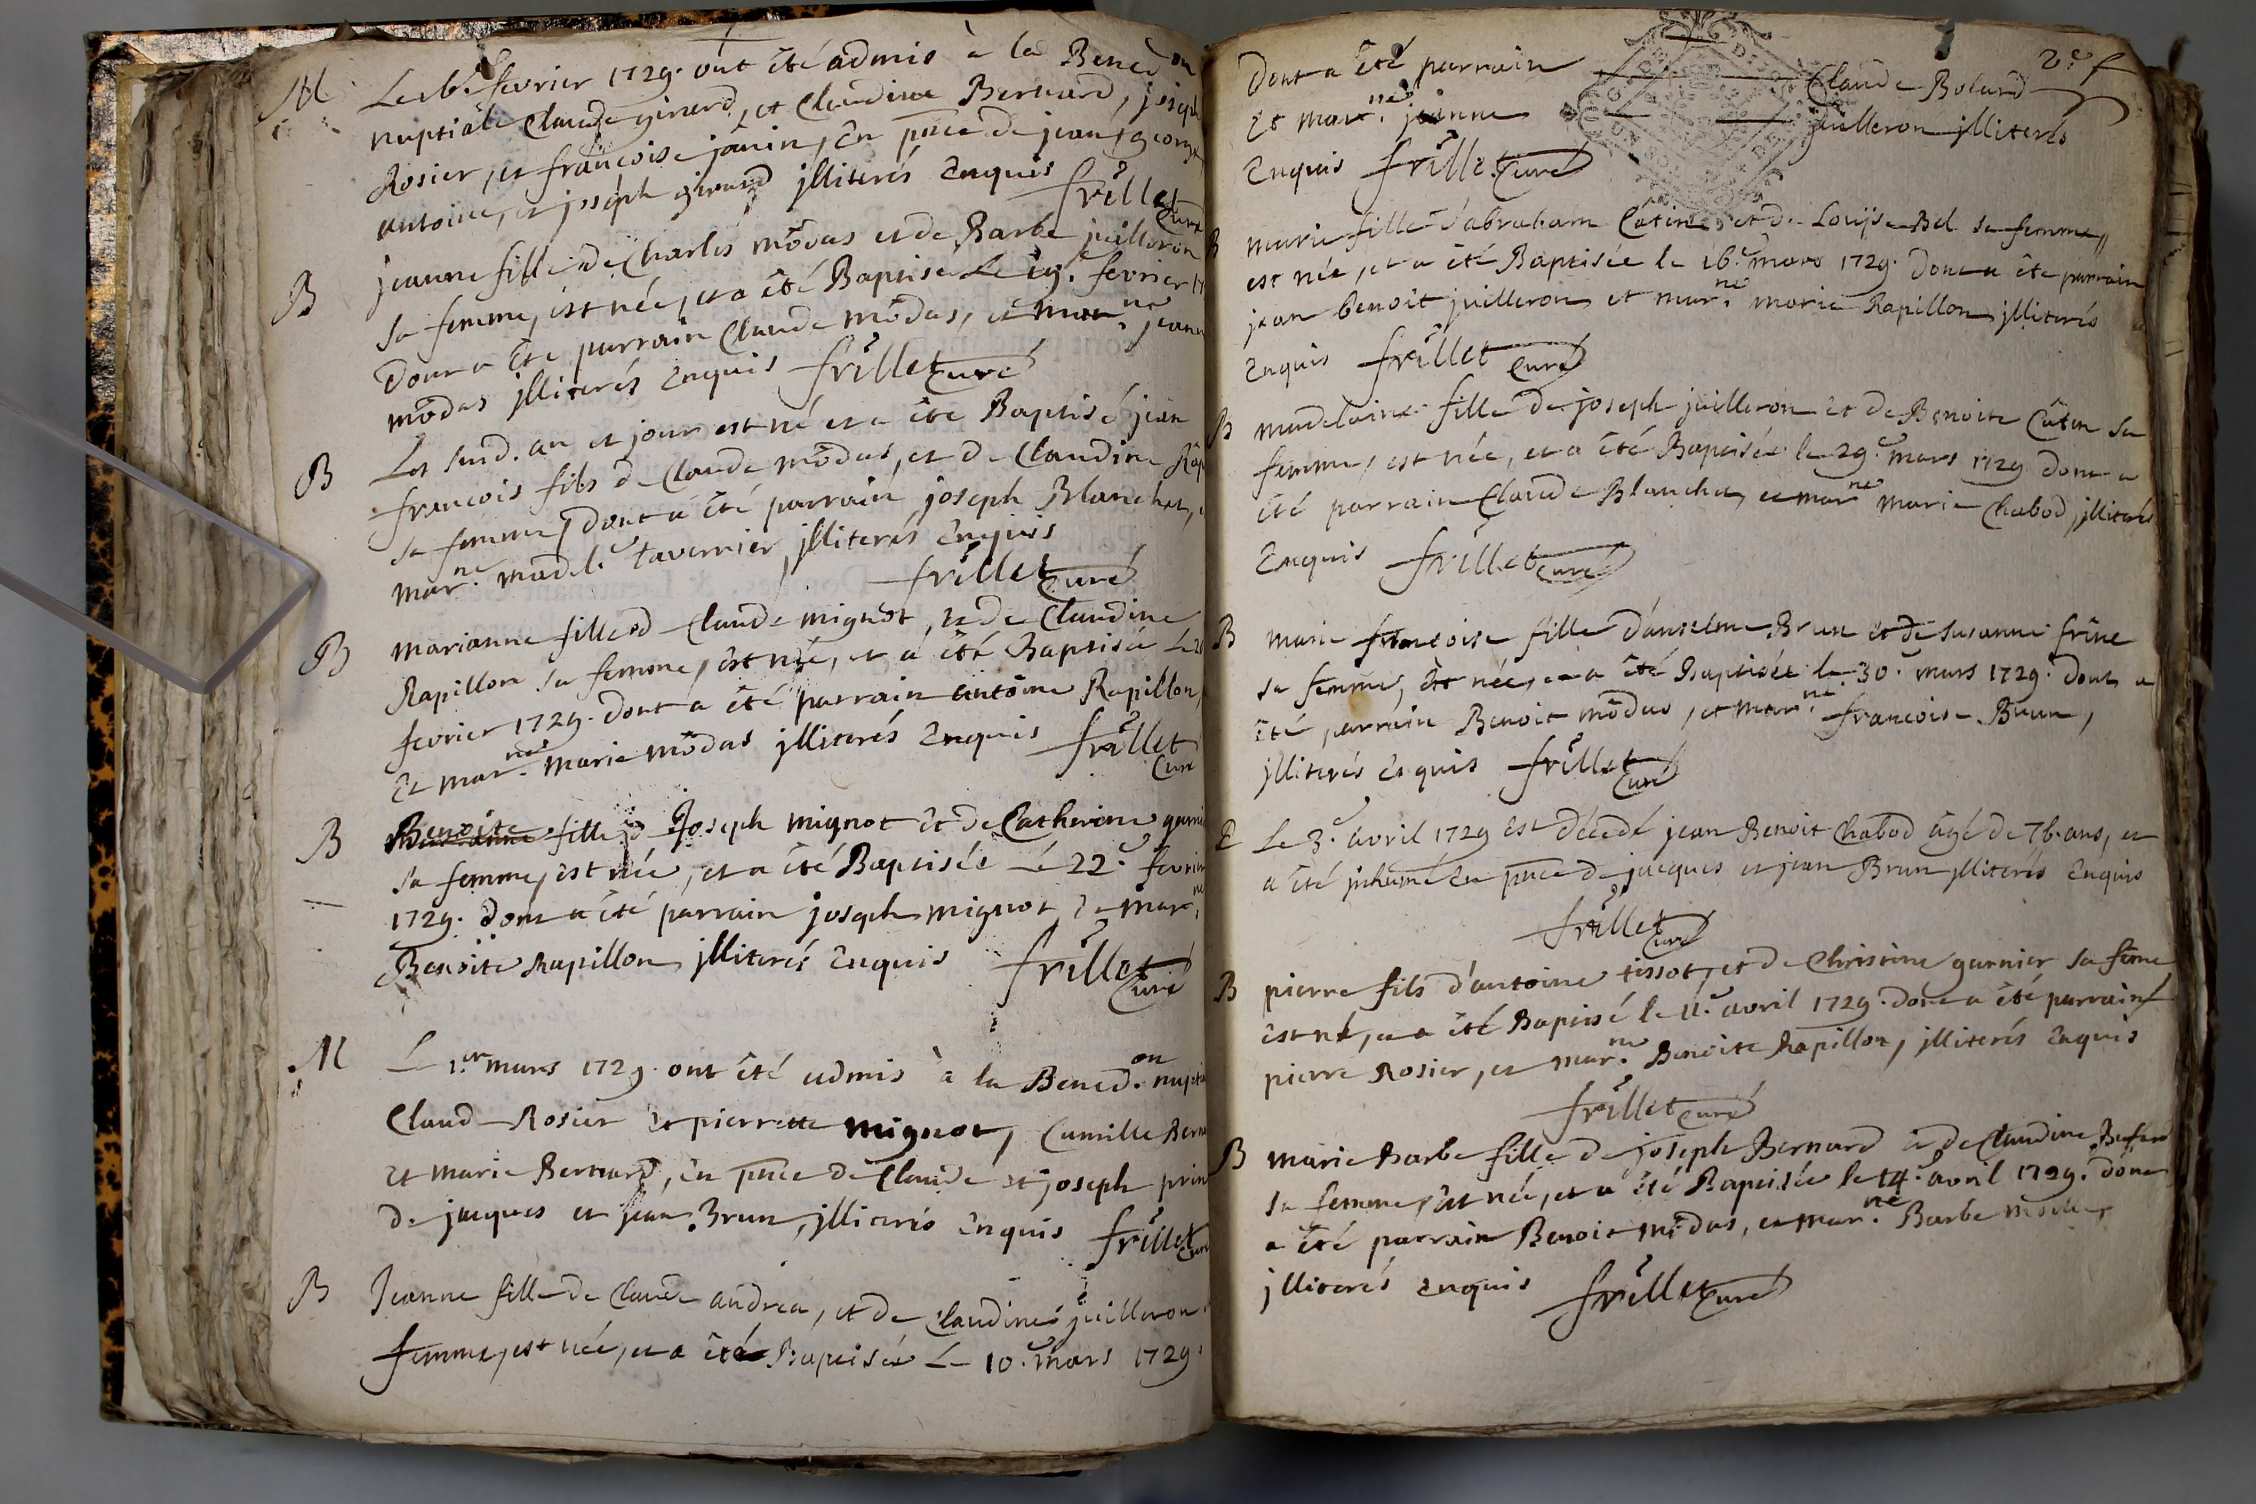 M
Le 6e fevrier 1729. ont été admis à la Bened.on
nuptiale Claude girard, et Claudine Bernard, joseph
Rosier, et francoise janin, En pnce de jean, george
antoine, et joseph girard jlliterés Enquis frillet Curé
B
jeanne fille de Charles môdas et de Barbe juilleron
sa femme, est née, et a été Baptisé Le 19. fevrier
dont a été parrain Claude môdas, et mar.ne jeanne
môdas jlliterés Enquis frillet Curé
B
Les susd. an et jour est né et a été Baptisé jean
francois fils de Claude môdas, et de Claudine
sa femme, dont a été parrain joseph Blanchet,
mar.ne madel.e tavernier jlliterés Enquis
frillet Curé
B
marianne fille de Claude mignot, et de Claudine
Rapillon sa femme, est née, et a été Baptisée Le
fevrier 1729. dont a été parrain antoine Rapillon,
Et mar.ne marie môdas jlliterés Enquis frillet
Curé
B
Benoite fille de Joseph mignot et de Catherine
sa femme, est née, et a été Baptisée Le 22.e fevrier
1729. dont a été parrain joseph mignot, et mar.ne
Benoite Rapillon jlliterés Enquis frillet
Curé
M
Le 1.er mars 1729. ont été admis à la Bened.on
Claude Rosier et pierrette mignot, Camille
et marie Bernard, En pnce de Claude et joseph
de jacques et jean Brun, jlliterés Enquis frillet Curé
B
Jeanne fille de Claude andrea, et de Claudine juilleron
femme, est née, et a été Baptisée Le 10.e mars 1729.
Dont a été parrain Claude Bolard
Et mar.ne jeanne juilleron jlliterés
Enquis frillet Curé
B
marie fille d'abraham Câtin, et de Louise Bel sa femme,
est née, et a été Baptisée le 16.e mars 1729. dont a été parrain
jean benoit juilleron et mar.ne marie Rapillon jlliterés
Enquis frillet Curé
B
madelaine fille de joseph juilleron et de Benoite Câtin sa
femme, est née, et a été Baptisée le 29.e mars 1729 dont a
été parrain Claude Blanchet, et mar.ne marie Chabod, jlliterés
Enquis frillet Curé
B
marie francoise fille d'anselme Brun et de susanne frine
sa femme, est née, et a été Baptisée le 30.e mars 1729. dont a
été parrain Benoit môdas, et mar.ne francoise Brun,
jlliterés Enquis frillet Curé
E
Le 3.e avril 1729 est décedé jean Benoit Chabod âgé de 76. ans, et
a été jnhumé En pnce de jacques et jean Brun jlliterés Enquis
frillet Curé
B
pierre fils d'antoine tissot, et de Christine garnier sa feme
est né, et a été Baptisé le 11.e avril 1729. dont a été parrain
pierre Rosier, et mar.ne Benoite Rapillon, jlliterés Enquis
frillet Curé
B
marie Barbe fille de joseph Bernard et de Claudine
sa femme, est née, et a été Baptisée le 14.e avril 1729. dont
a été parrain Benoit môdas, et mar.ne Barbe
jlliterés Enquis frillet Curé